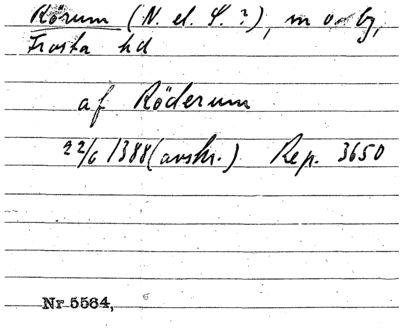 Rörum (N. el. S.?), m o by,
Frosta hd
af Röderum
22/6 1388 (avskr.) Rep. 3650
Nr 5564,